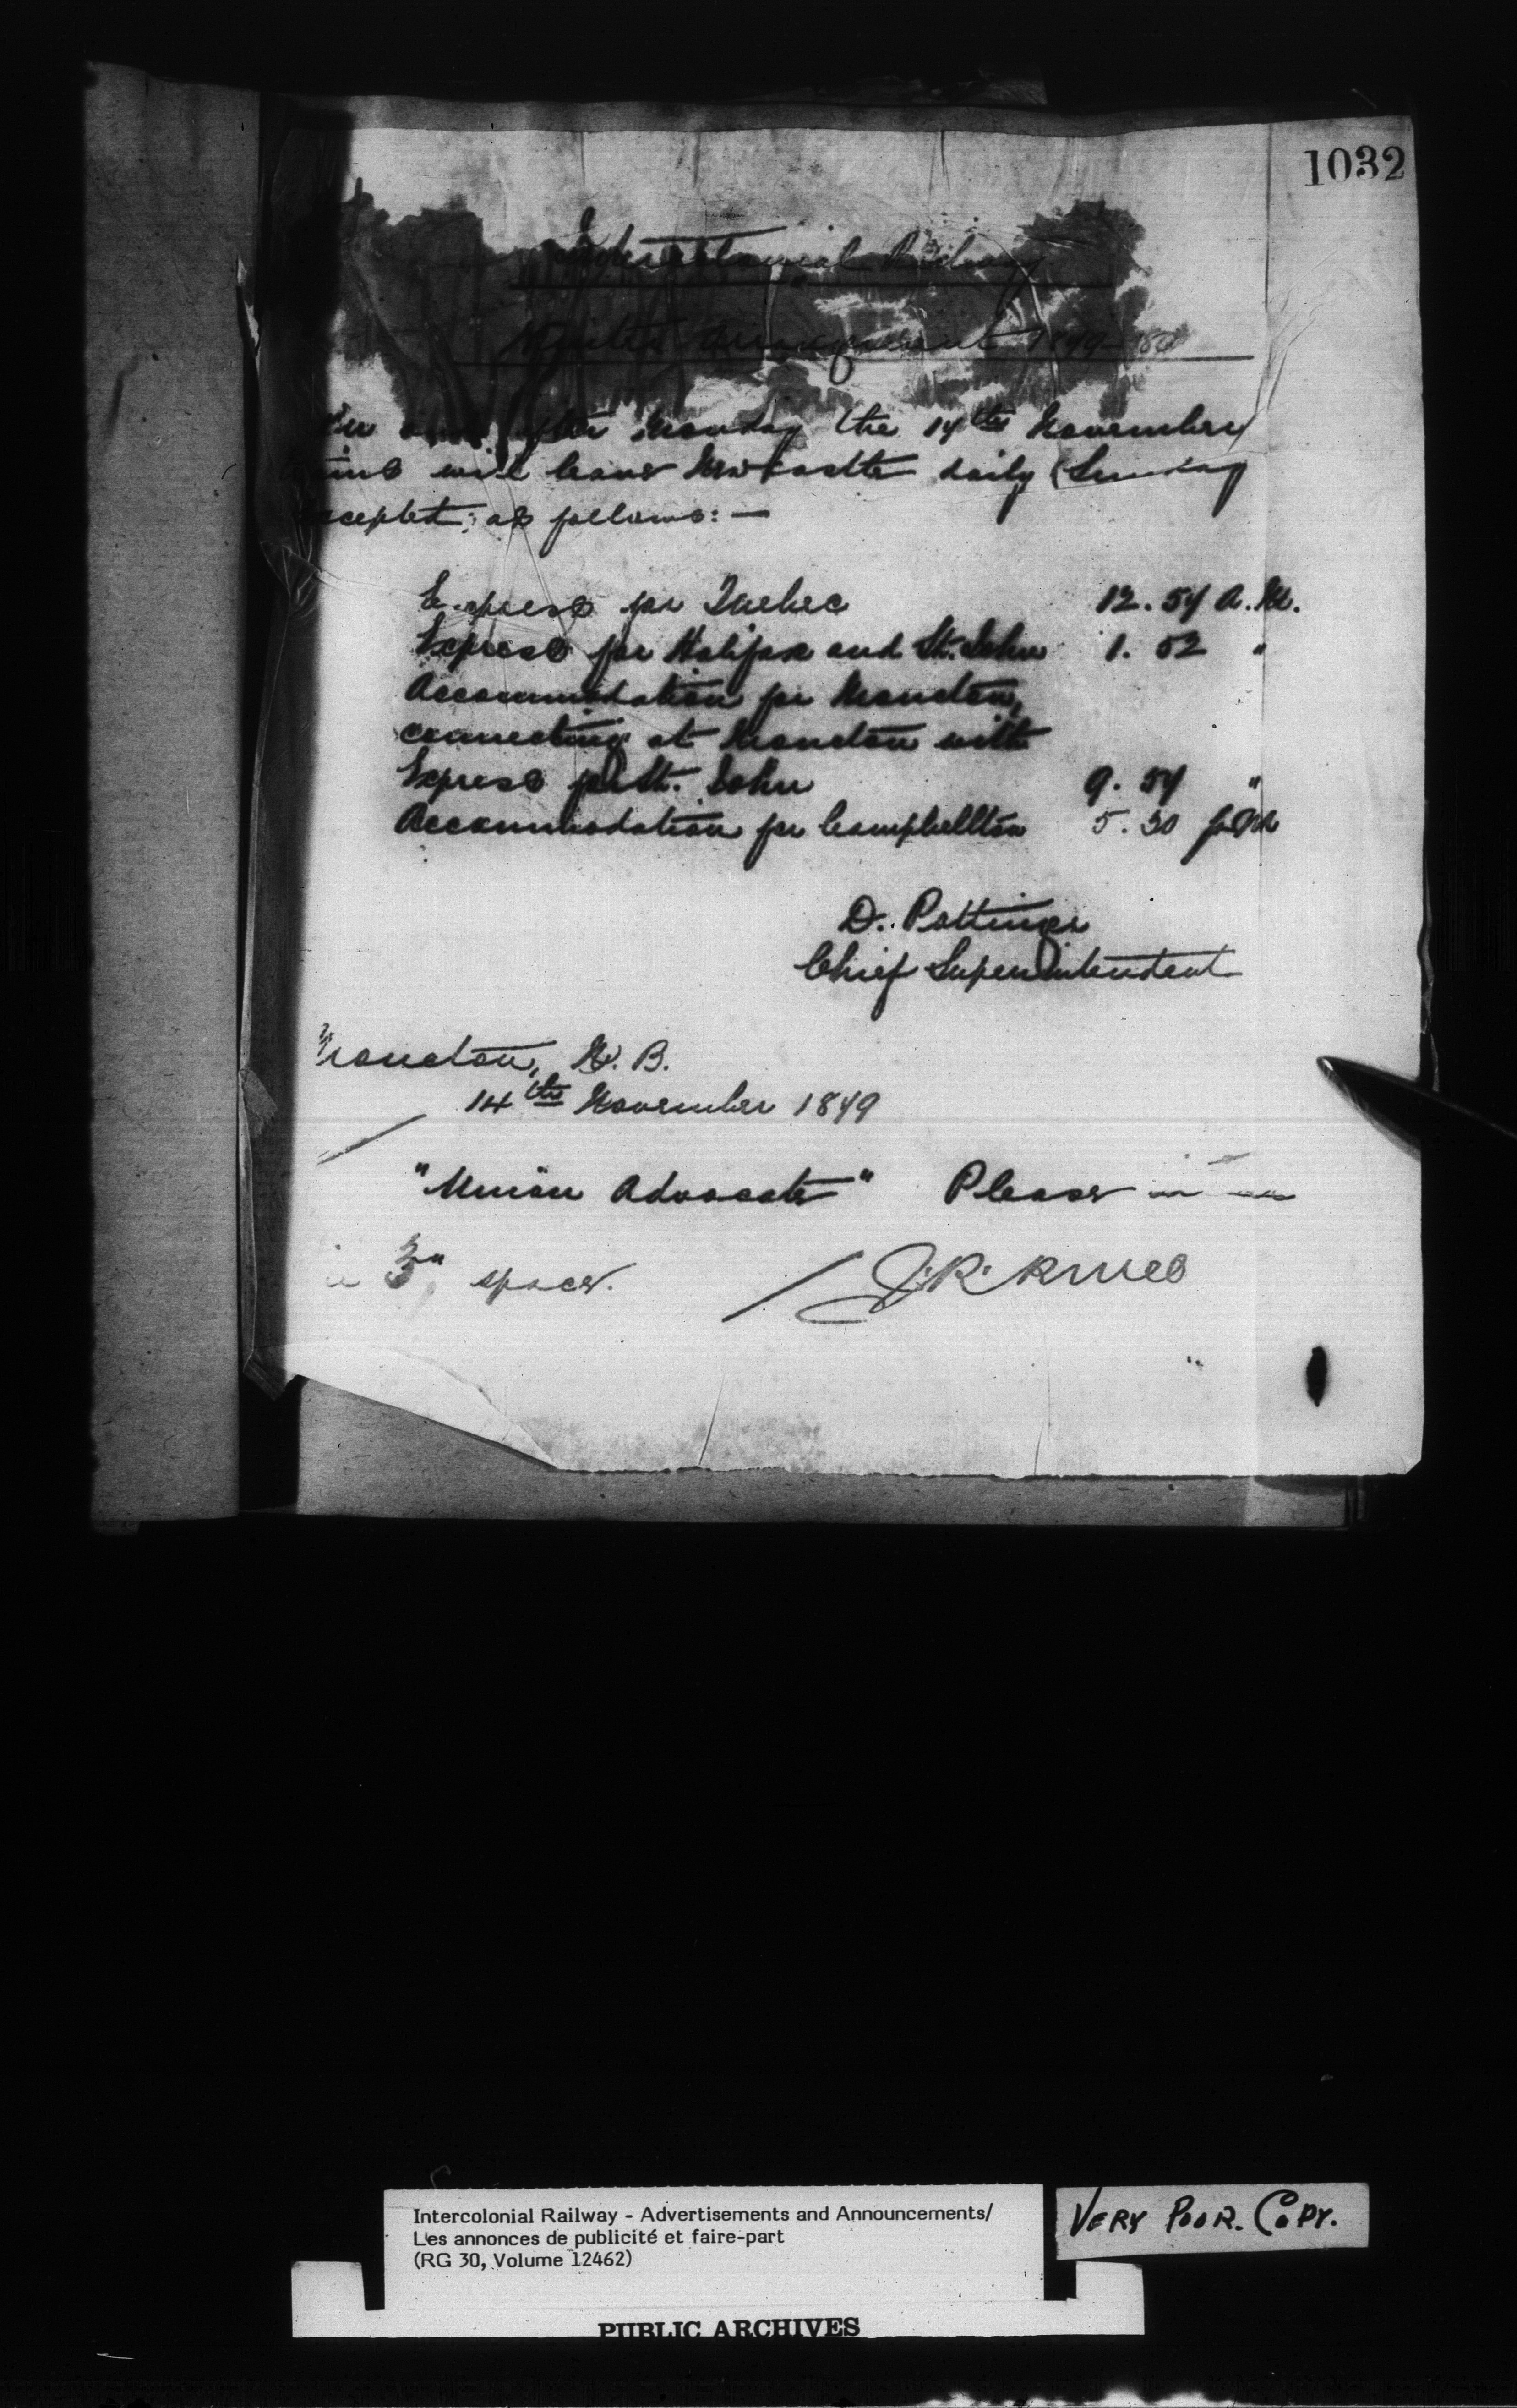 1032
Intercolonial Railway
Winter Arrangement 1879-80
On and after Monday the 17th November
trains will leave Newcastle daily (Sunday
excepted) as follows: —
Express for Quebec 12.57 A.M.
Express for Halifax and St. John 1.52 "
Accommodation for Moncton,
connecting at Moncton with
Express for St. John 9.57 "
Accommodation for Campbellton 5.30 P.M
D. Pottinger
Chief Superintendent
Moncton, N.B.
14th November 1879
"Union Advocate" Please
in 3" space.
Intercolonial Railway - Advertisements and Announcements/
Les annonces de publicité et faire-part
(RG 30, Volume 12462)
VERY POOR. COPY.
PUBLIC ARCHIVES